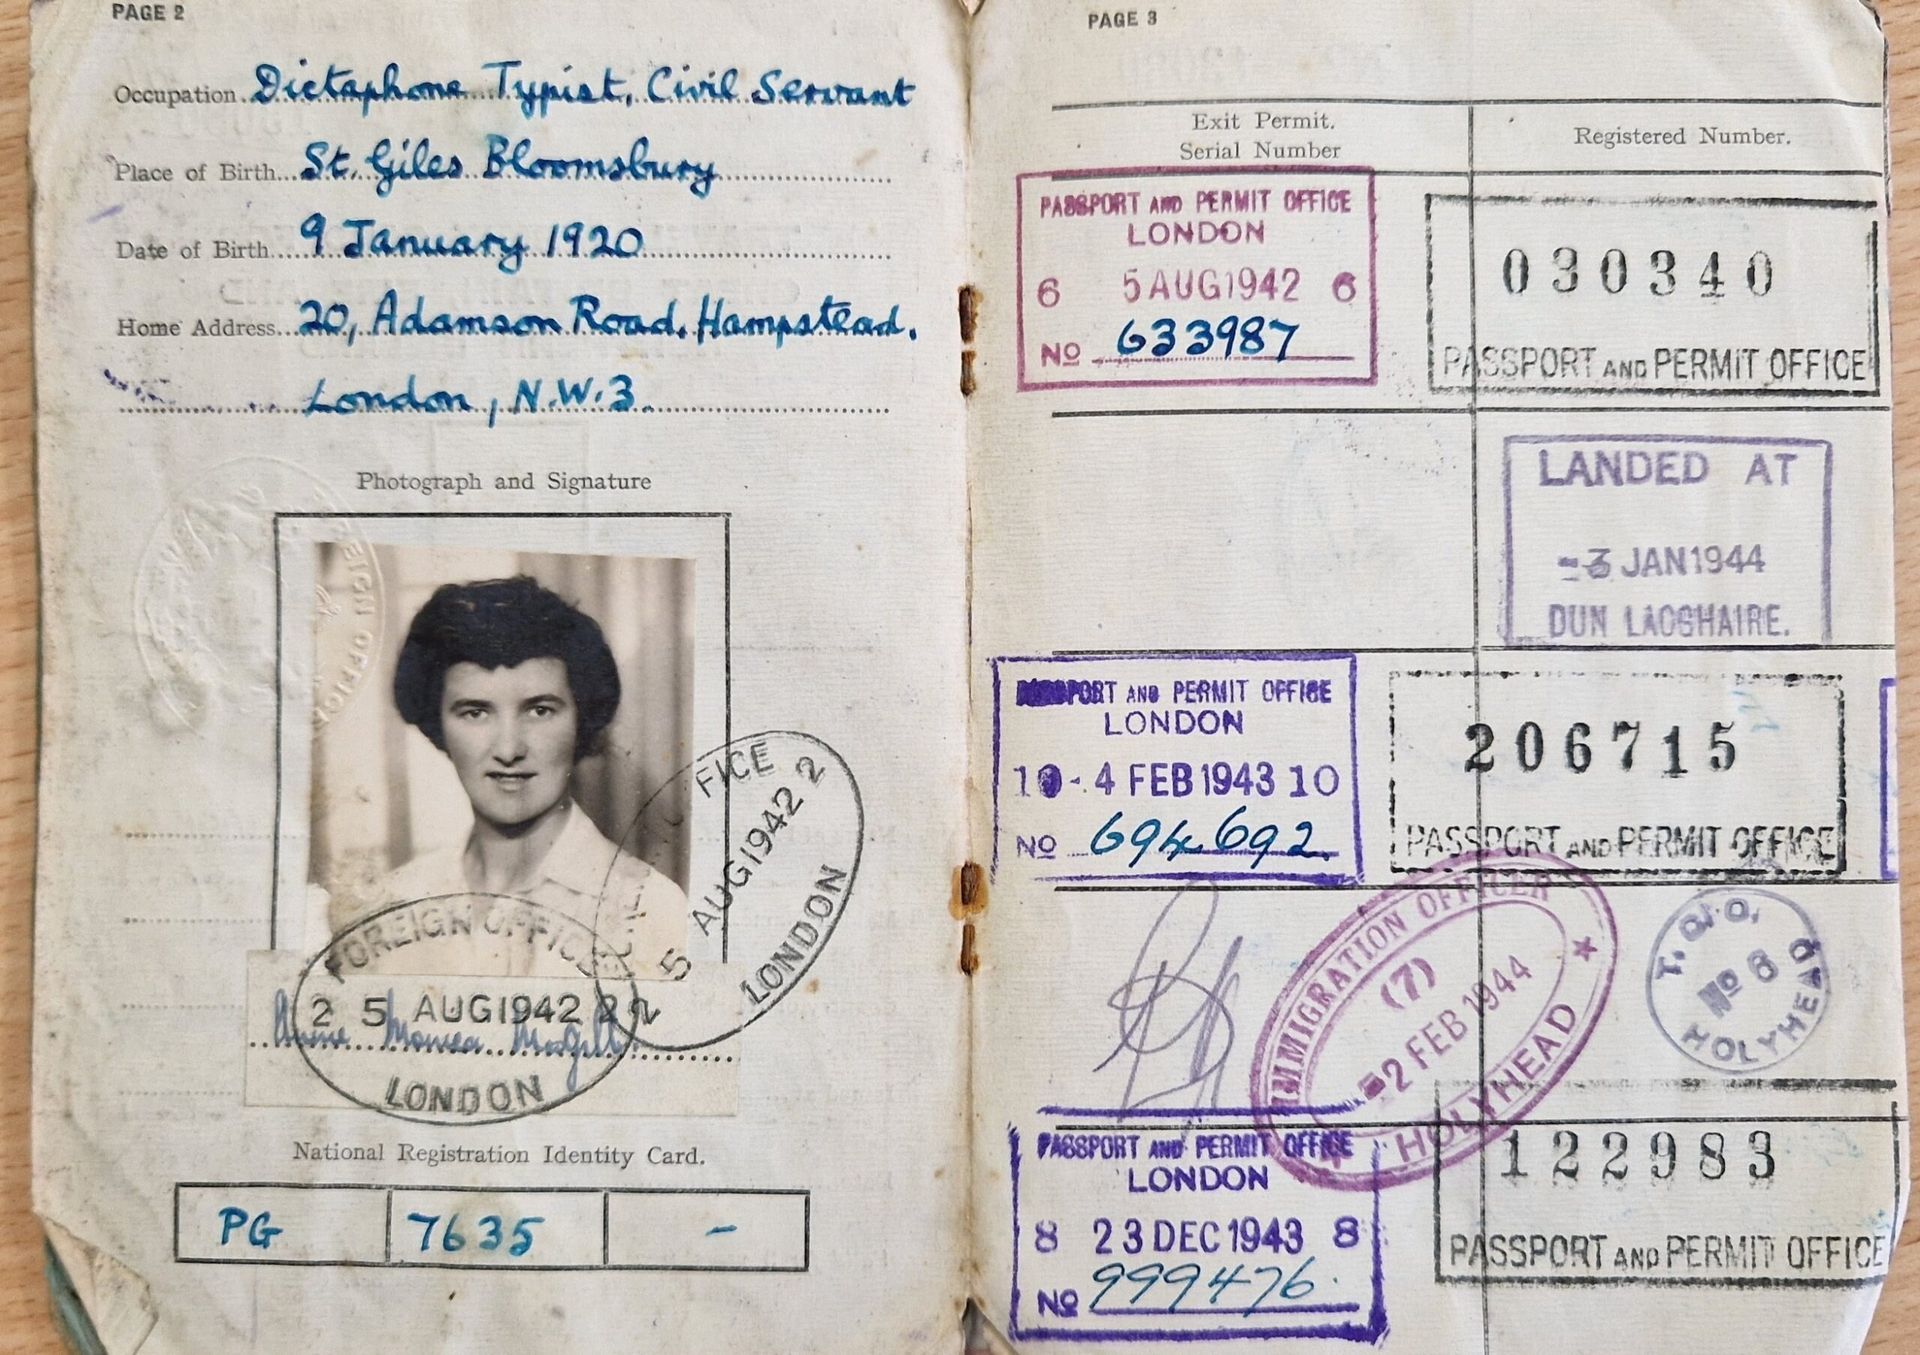 PAGE 2
Occupation Dictaphone Typist, Civil Servant
Place of Birth St. Giles Bloomsbury
Date of Birth 9 January 1920
Home Address 20, Adamson Road, Hampstead.
London, N.W.3.
Photograph and Signature
FICE
2 5 AUG 1942 2
LONDON
FOREIGN OFFICE
2 5 AUG 1942 2
Anne Monica
LONDON
National Registration Identity Card.
PG 7635 -
PAGE 3
Exit Permit.
Serial Number
Registered Number.
PASSPORT AND PERMIT OFFICE
LONDON
6 5 AUG 1942 6
No 633987
030340
PASSPORT AND PERMIT OFFICE
LANDED AT
-3 JAN 1944
DUN LAOGHAIRE.
PASSPORT AND PERMIT OFFICE
LONDON
10 - 4 FEB 1943 10
No 694692.
206715
PASSPORT AND PERMIT OFFICE
IMMIGRATION OFFICER
(7)
-2 FEB 1944
HOLYHEAD
No 6
HOLYHEAD
PASSPORT AND PERMIT OFFICE
LONDON
8 23 DEC 1943 8
No 999476.
122983
PASSPORT AND PERMIT OFFICE